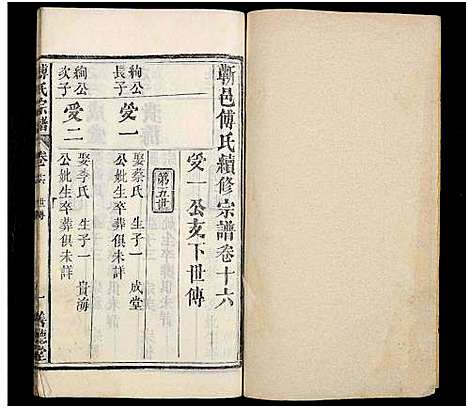 蘄邑傅氏續修宗譜卷十六
受一公支下世傳
第五世
絢公
長子
受一
娶蔡氏 生子一 成堂
公妣生卒葬俱未詳
絢公
次子
受二
娶李氏 生子一 貴海
公妣生卒葬俱未詳
傅氏宗譜 卷十六 世傳 一 善德堂